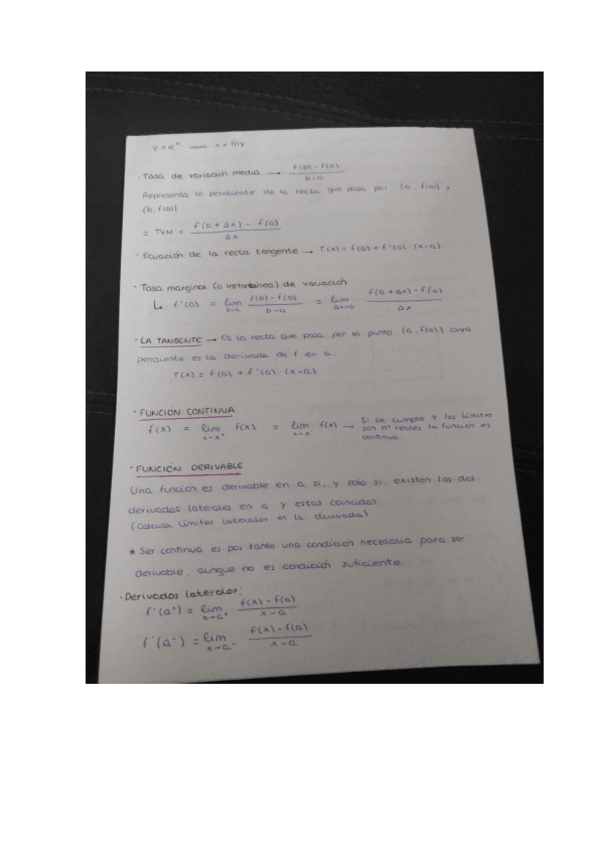 y = eˣ ⟶ x = lny
· Tasa de variación media ⟶ f(b) - f(a) / b - a
Representa la pendiente de la recta que pasa por (a, f(a)) y
(b, f(b))
= TVM = f(a + Δx) - f(a) / Δx
· Ecuación de la recta tangente ⟶ T(x) = f(a) + f'(a) · (x-a)
· Tasa marginal (o instantánea) de variación
↳ f'(a) = lim b→a f(b) - f(a) / b - a = lim Δx→0 f(a + Δx) - f(a) / Δx
· LA TANGENTE → Es la recta que pasa por el punto (a, f(a)) cuya
pendiente es la derivada de f en a.
T(x) = f(a) + f'(a) · (x-a)
· FUNCIÓN CONTINUA
f(x) = lim x→x⁺ f(x) = lim x→x⁻ f(x) → Si se cumple y los límites
son nº reales la función es
continua.
· FUNCIÓN DERIVABLE
Una función es derivable en a si, y solo si, existen las dos
derivadas laterales en a y estas coinciden.
(Calcula límites laterales en la derivada)
* Ser continua es por tanto una condición necesaria para ser
derivable, aunque no es condición suficiente.
· Derivadas laterales:
f'(a⁺) = lim x→a⁺ f(x) - f(a) / x - a
f'(a⁻) = lim x→a⁻ f(x) - f(a) / x - a